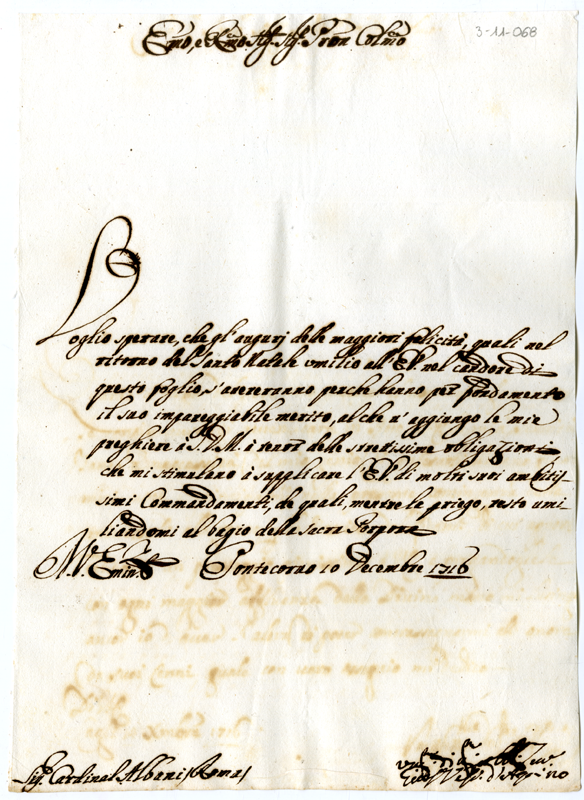 3-11-068
Emo, e Rmo Sig. Sig. Pron Colmo
Voglio sperare, che gl'augurj delle maggiori felicità, quali nel
ritorno del Santo Natale umilio all'E.V. nel candore di
questo foglio, s'avereranno perche hanno per fondamento
il suo impareggiabile merito, al che v'aggiungo le mie
preghiere à S.D.M. à tenor delle strettissime obligazioni
che mi stimulano à supplicare l'E.V. di molti suoi ambitis-
simi Commandamenti, de quali, mentre la priego, resto umi-
liandomi al bagio della Sacra Porpora
V. Emin. Pontecorvo 10 Decembre 1716
Sig. Cardinal Albani / Roma /
d'Aquino